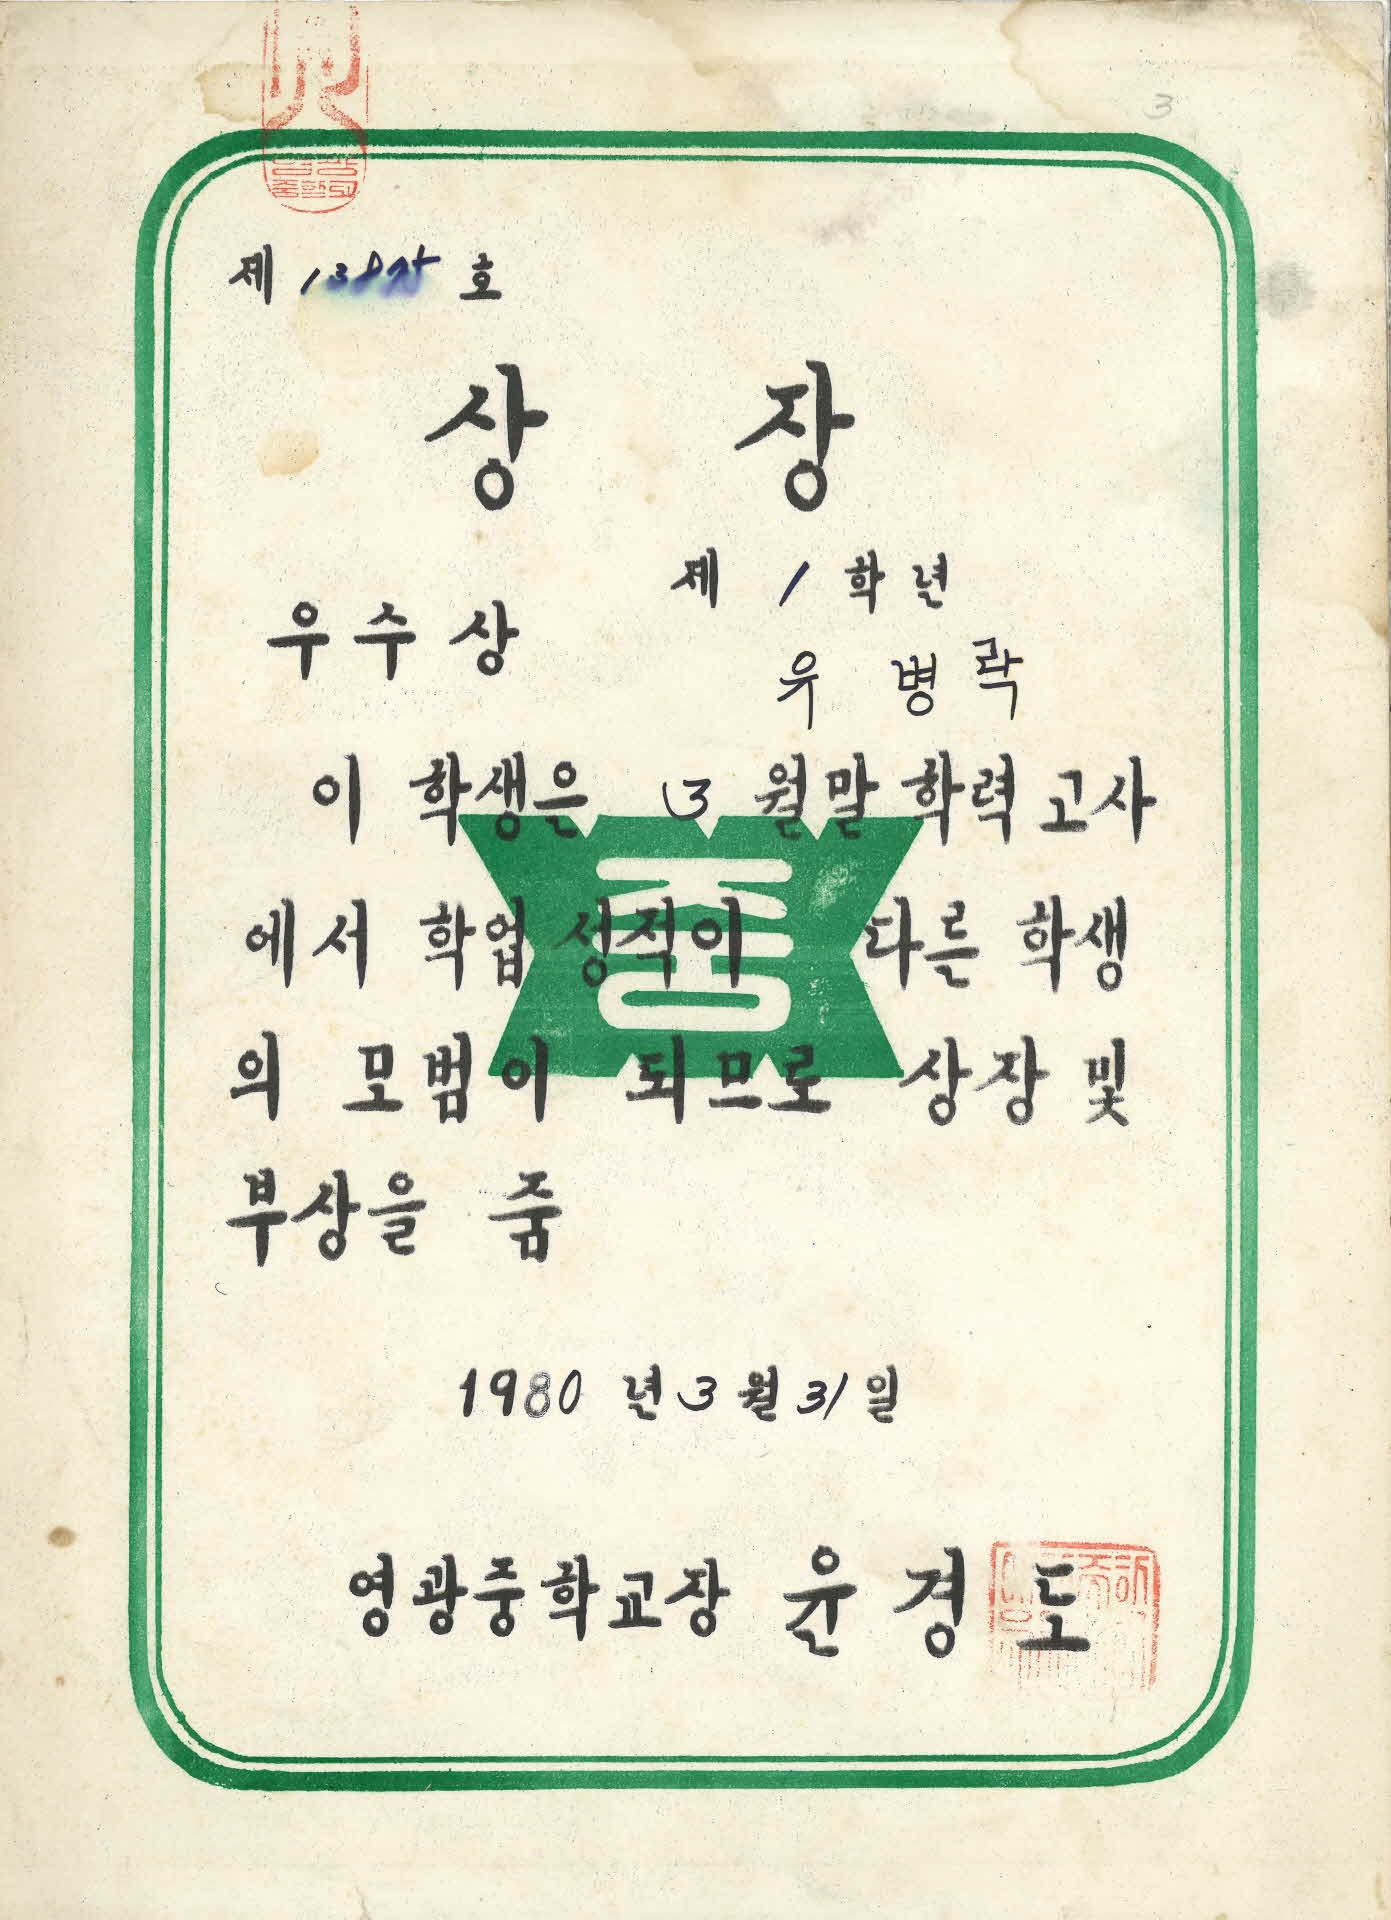 3
제 호
상 장
제 1 학년
우수상
유 병락
이 학생은 3 월말 학력고사
중
에서 학업 성적이 다른 학생
의 모범이 되므로 상장 및
부상을 줌
1980 년 3 월 31 일
영광중학교장 윤 경 도